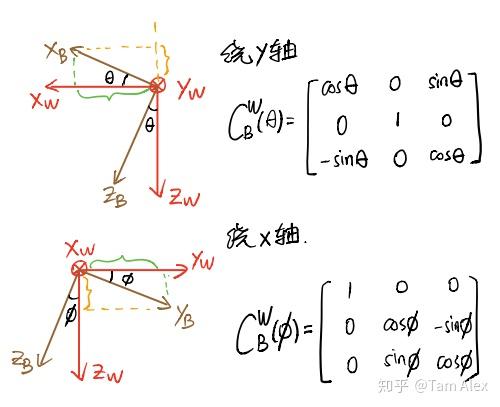 X_B
θ
X_W
Y_W
θ
Z_B
Z_W
绕Y轴
C_B^W(θ)=
cosθ 0 sinθ
0 1 0
-sinθ 0 cosθ
X_W
Y_W
ϕ
ϕ
Y_B
Z_B
Z_W
绕X轴.
C_B^W(ϕ)=
1 0 0
0 cosϕ -sinϕ
0 sinϕ cosϕ
知乎 @Tam Alex